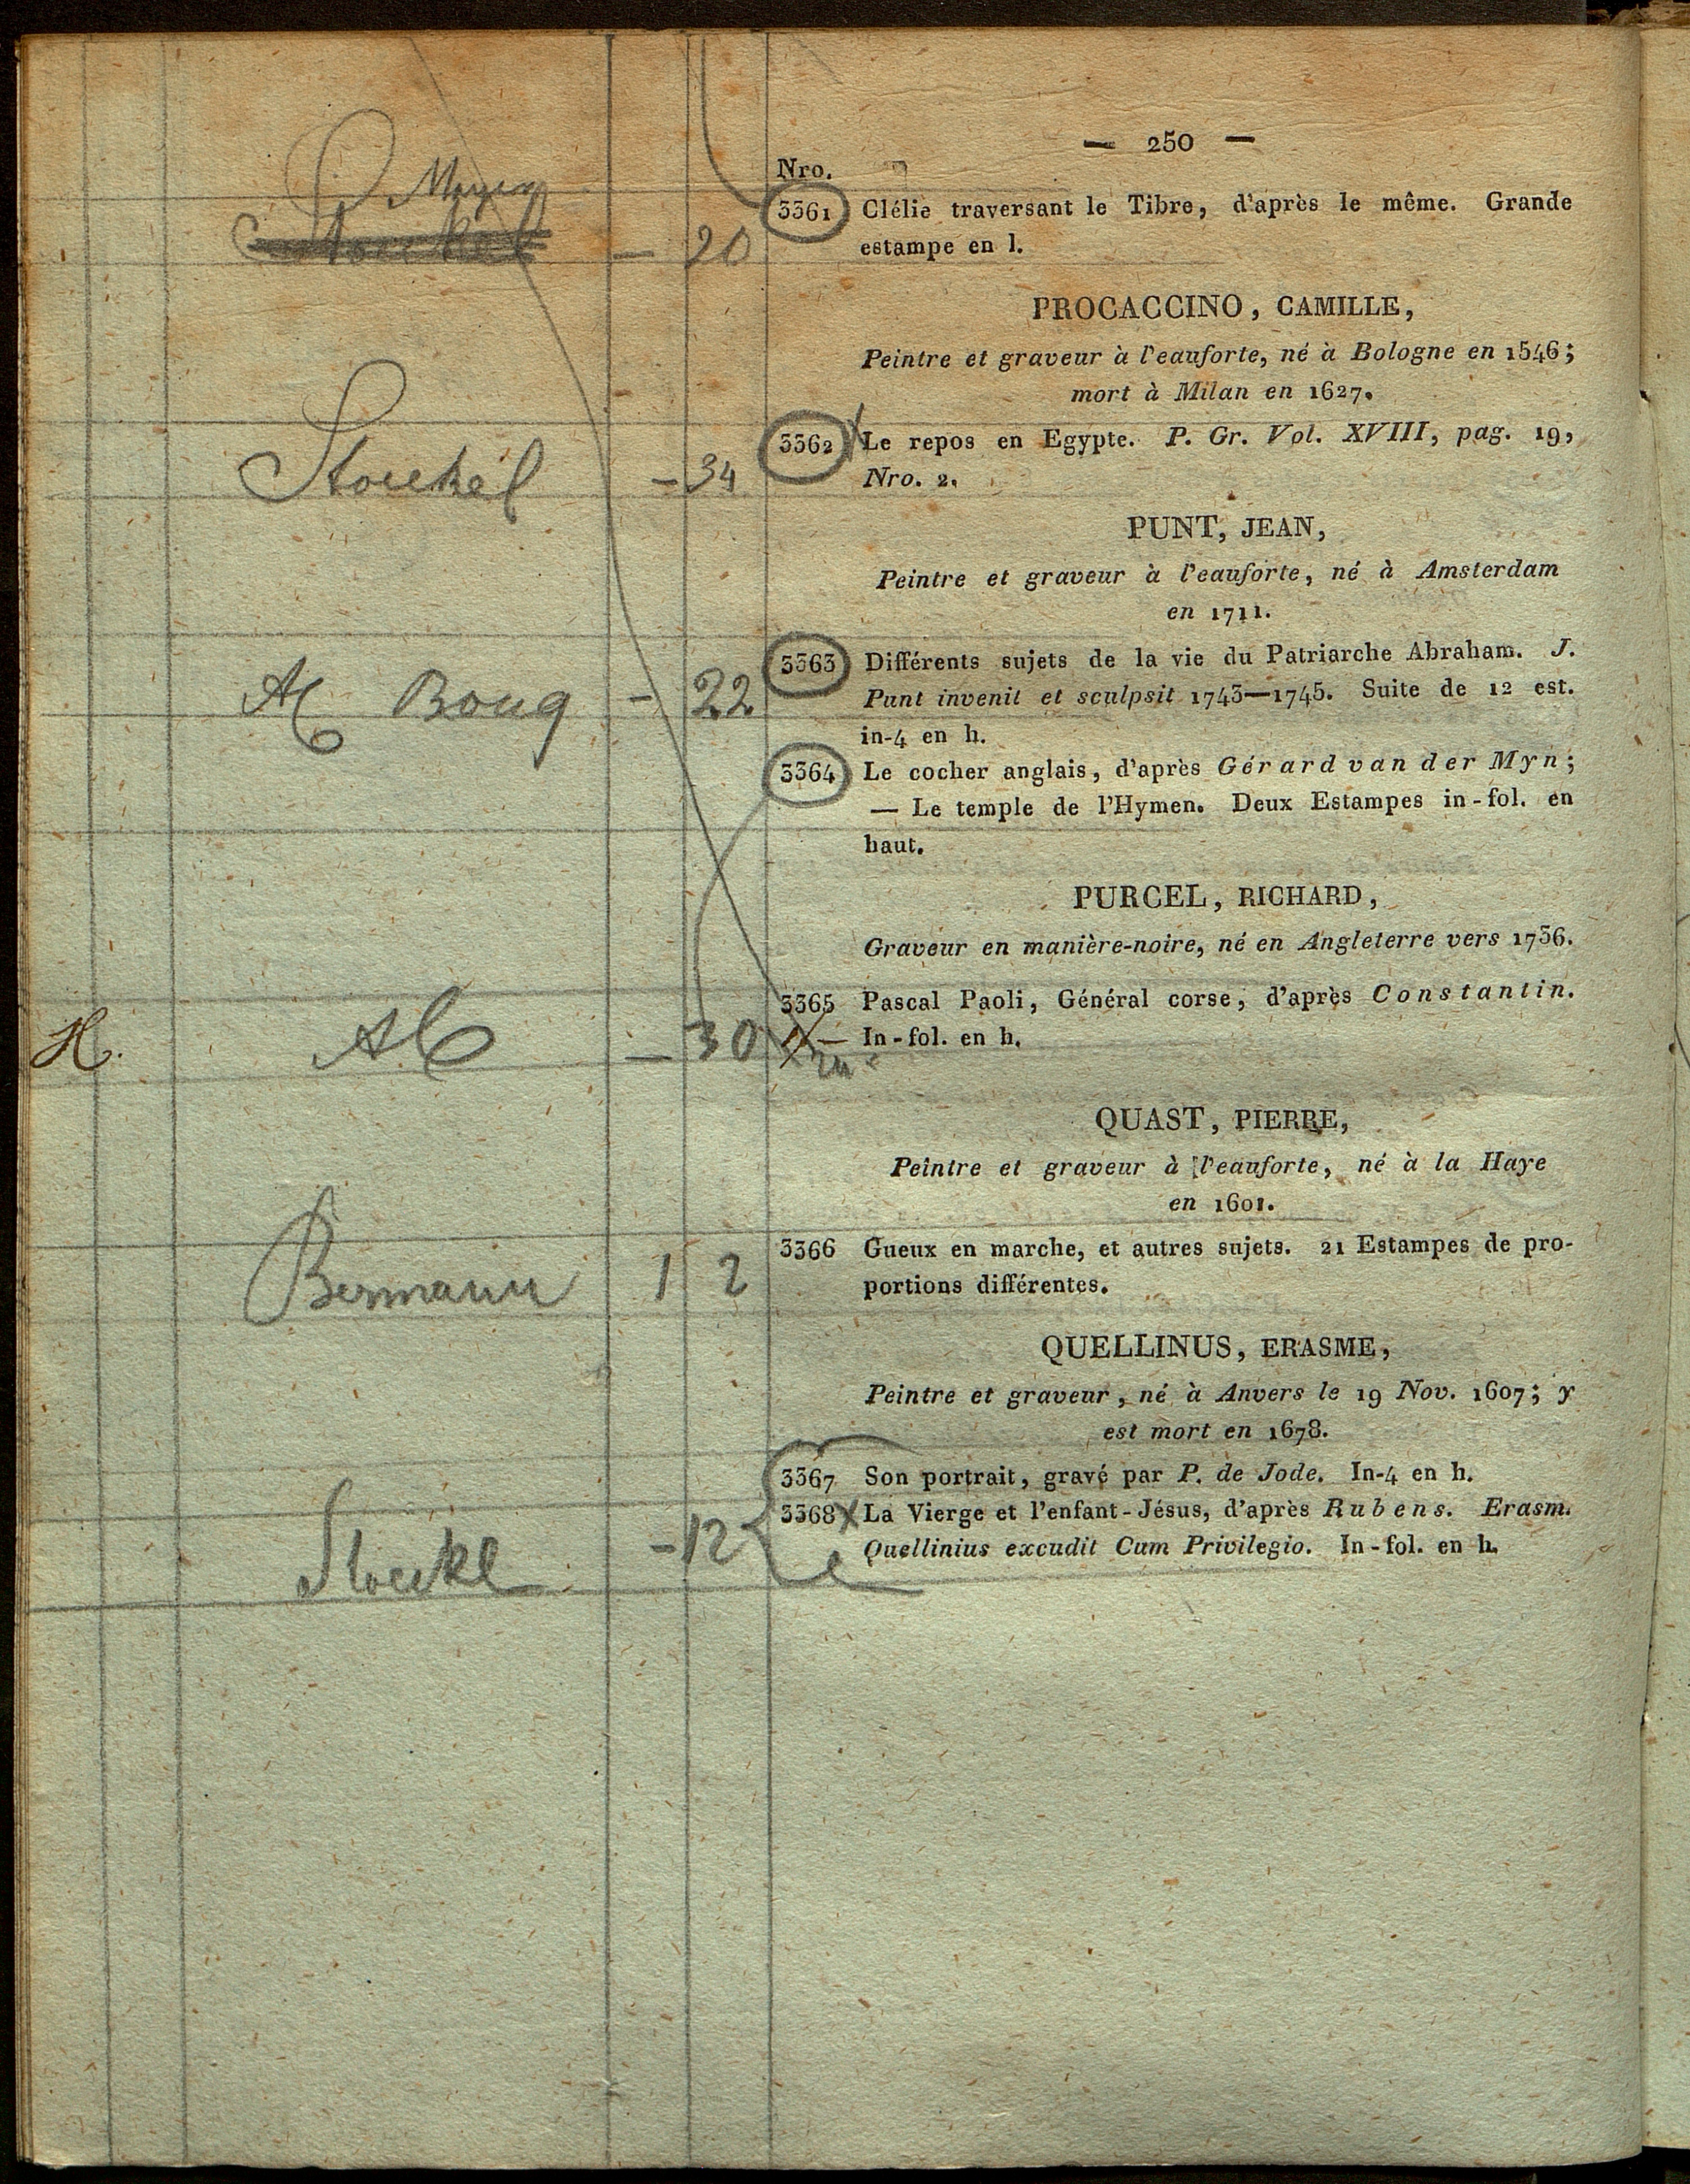 — 250 —
Nro.
Mayer
— 20
3361 Clélie traversant le Tibre, d'après le même. Grande
estampe en l.
PROCACCINO, CAMILLE,
Peintre et graveur à l'eauforte, né à Bologne en 1546;
mort à Milan en 1627.
Stoeckel - 34
3362 X Le repos en Egypte. P. Gr. Vol. XVIII, pag. 19,
Nro. 2.
PUNT, JEAN,
Peintre et graveur à l'eauforte, né à Amsterdam
en 1711.
- 22
3363 Différents sujets de la vie du Patriarche Abraham. J.
Punt invenit et sculpsit 1743—1745. Suite de 12 est.
in-4 en h.
3364 Le cocher anglais, d'après Gérard van der Myn;
— Le temple de l'Hymen. Deux Estampes in-fol. en
haut.
PURCEL, RICHARD,
Graveur en manière-noire, né en Angleterre vers 1736.
H. — 30
3365 Pascal Paoli, Général corse, d'après Constantin.
In-fol. en h.
QUAST, PIERRE,
Peintre et graveur à l'eauforte, né à la Haye
en 1601.
Bermann 1 2
3366 Gueux en marche, et autres sujets. 21 Estampes de pro-
portions différentes.
QUELLINUS, ERASME,
Peintre et graveur, né à Anvers le 19 Nov. 1607; y
est mort en 1678.
3367 Son portrait, gravé par P. de Jode. In-4 en h.
Stoeckl - 12
3368 X La Vierge et l'enfant-Jésus, d'après Rubens. Erasm.
Quellinius excudit Cum Privilegio. In-fol. en h.